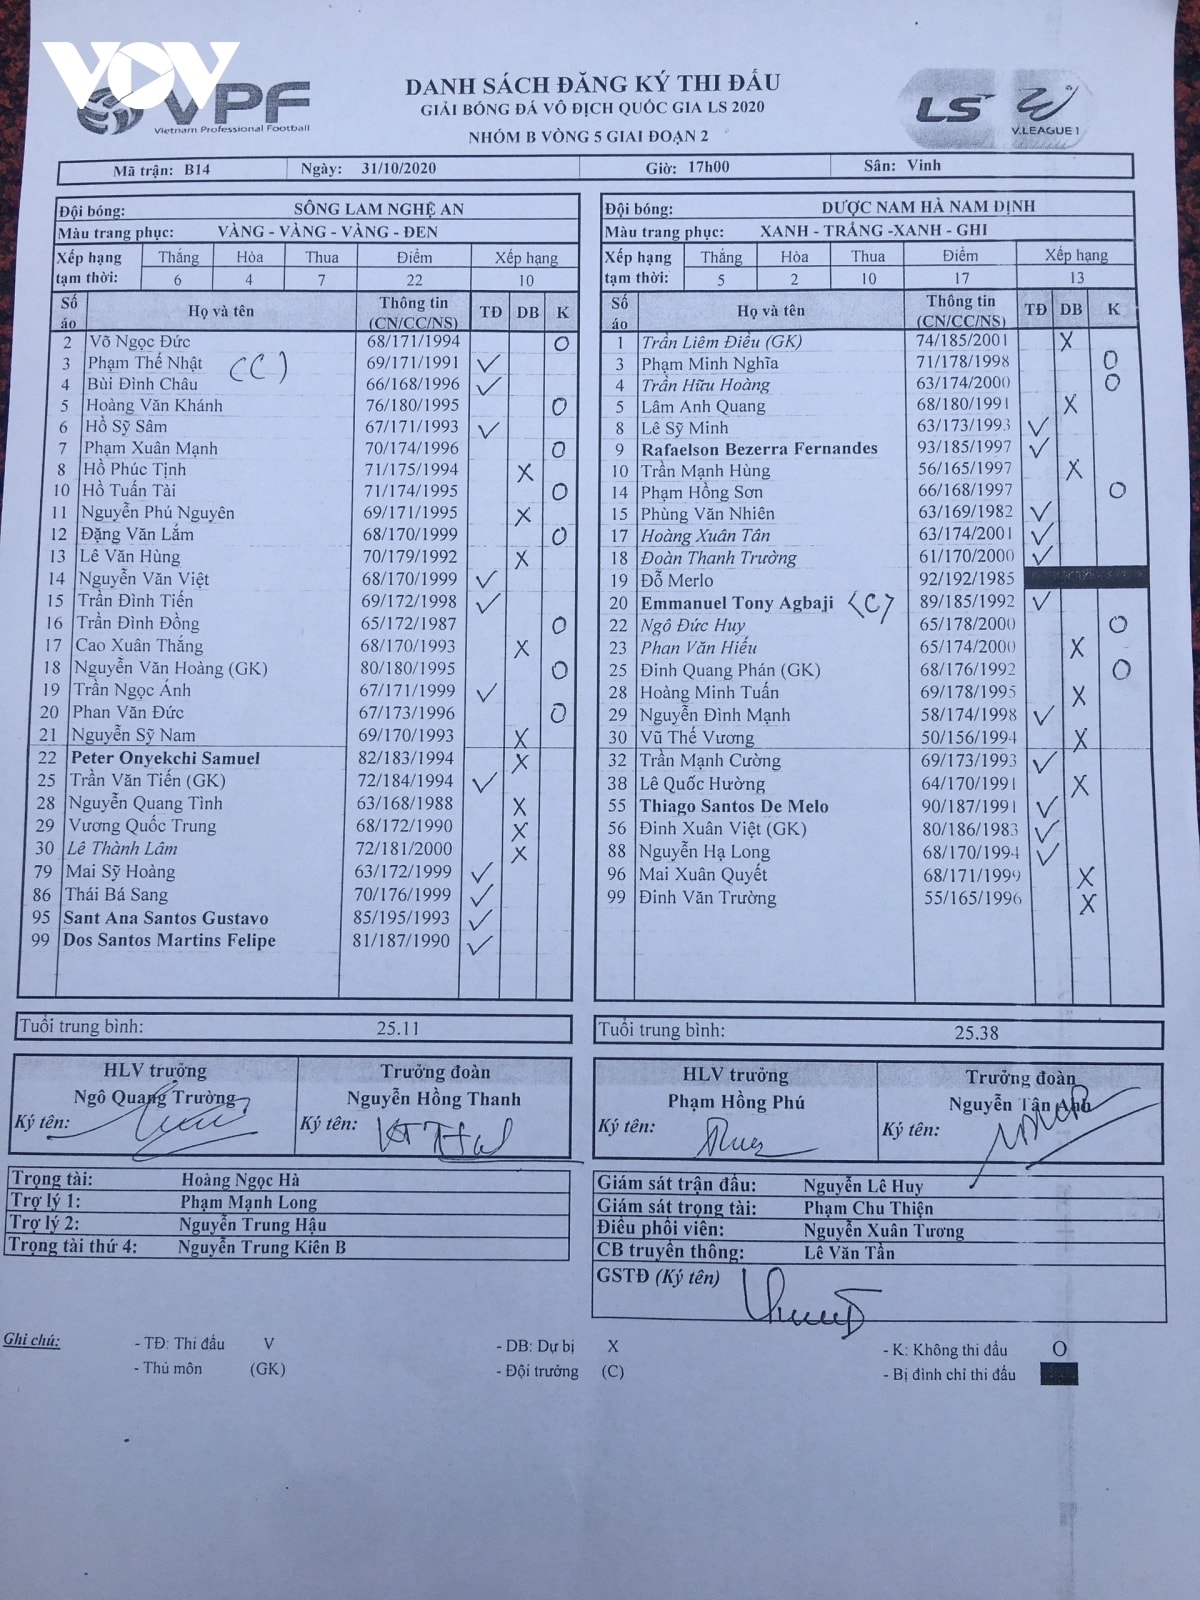 VOV
VPF
Vietnam Professional Football
DANH SÁCH ĐĂNG KÝ THI ĐẤU
GIẢI BÓNG ĐÁ VÔ ĐỊCH QUỐC GIA LS 2020
NHÓM B VÒNG 5 GIAI ĐOẠN 2
LS V.LEAGUE 1
Mã trận: B14 Ngày: 31/10/2020 Giờ: 17h00 Sân: Vinh
Đội bóng: SÔNG LAM NGHỆ AN
Màu trang phục: VÀNG - VÀNG - VÀNG - ĐEN
Xếp hạng Thắng Hòa Thua Điểm Xếp hạng
tạm thời: 6 4 7 22 10
Số áo Họ và tên Thông tin (CN/CC/NS) TĐ DB K
2 Võ Ngọc Đức 68/171/1994 O
3 Phạm Thế Nhật (C) 69/171/1991 V
4 Bùi Đình Châu 66/168/1996 V
5 Hoàng Văn Khánh 76/180/1995 O
6 Hồ Sỹ Sâm 67/171/1993 V
7 Phạm Xuân Mạnh 70/174/1996 O
8 Hồ Phúc Tịnh 71/175/1994 X
10 Hồ Tuấn Tài 71/174/1995 O
11 Nguyễn Phú Nguyên 69/171/1995 X
12 Đặng Văn Lắm 68/170/1999 O
13 Lê Văn Hùng 70/179/1992 X
14 Nguyễn Văn Việt 68/170/1999 V
15 Trần Đình Tiến 69/172/1998 V
16 Trần Đình Đồng 65/172/1987 O
17 Cao Xuân Thắng 68/170/1993 X
18 Nguyễn Văn Hoàng (GK) 80/180/1995 O
19 Trần Ngọc Ánh 67/171/1999 V
20 Phan Văn Đức 67/173/1996 O
21 Nguyễn Sỹ Nam 69/170/1993 X
22 Peter Onyekchi Samuel 82/183/1994 X
25 Trần Văn Tiến (GK) 72/184/1994 V
28 Nguyễn Quang Tình 63/168/1988 X
29 Vương Quốc Trung 68/172/1990 X
30 Lê Thành Lâm 72/181/2000 X
79 Mai Sỹ Hoàng 63/172/1999 V
86 Thái Bá Sang 70/176/1999 V
95 Sant Ana Santos Gustavo 85/195/1993 V
99 Dos Santos Martins Felipe 81/187/1990 V
Tuổi trung bình: 25.11
HLV trưởng Trưởng đoàn
Ngô Quang Trường Nguyễn Hồng Thanh
Ký tên: Ký tên:
Trọng tài: Hoàng Ngọc Hà
Trợ lý 1: Phạm Mạnh Long
Trợ lý 2: Nguyễn Trung Hậu
Trọng tài thứ 4: Nguyễn Trung Kiên B
Đội bóng: DƯỢC NAM HÀ NAM ĐỊNH
Màu trang phục: XANH - TRẮNG -XANH - GHI
Xếp hạng Thắng Hòa Thua Điểm Xếp hạng
tạm thời: 5 2 10 17 13
Số áo Họ và tên Thông tin (CN/CC/NS) TĐ DB K
1 Trần Liêm Điều (GK) 74/185/2001 X
3 Phạm Minh Nghĩa 71/178/1998 O
4 Trần Hữu Hoàng 63/174/2000 O
5 Lâm Anh Quang 68/180/1991 X
8 Lê Sỹ Minh 63/173/1993 V
9 Rafaelson Bezerra Fernandes 93/185/1997 V
10 Trần Mạnh Hùng 56/165/1997 X
14 Phạm Hồng Sơn 66/168/1997 O
15 Phùng Văn Nhiên 63/169/1982 V
17 Hoàng Xuân Tân 63/174/2001 V
18 Đoàn Thanh Trường 61/170/2000 V
19 Đỗ Merlo 92/192/1985
20 Emmanuel Tony Agbaji (C) 89/185/1992 V
22 Ngô Đức Huy 65/178/2000 O
23 Phan Văn Hiếu 65/174/2000 X
25 Đinh Quang Phán (GK) 68/176/1992 O
28 Hoàng Minh Tuấn 69/178/1995 X
29 Nguyễn Đình Mạnh 58/174/1998 V
30 Vũ Thế Vương 50/156/1994 X
32 Trần Mạnh Cường 69/173/1993 V
38 Lê Quốc Hường 64/170/1991 X
55 Thiago Santos De Melo 90/187/1991 V
56 Đinh Xuân Việt (GK) 80/186/1983 V
88 Nguyễn Hạ Long 68/170/1994 V
96 Mai Xuân Quyết 68/171/1999 X
99 Đinh Văn Trường 55/165/1996 X
Tuổi trung bình: 25.38
HLV trưởng Trưởng đoàn
Phạm Hồng Phú Nguyễn Tân Anh
Ký tên: Ký tên:
Giám sát trận đấu: Nguyễn Lê Huy
Giám sát trọng tài: Phạm Chu Thiện
Điều phối viên: Nguyễn Xuân Tương
CB truyền thông: Lê Văn Tần
GSTĐ (Ký tên)
Ghi chú: - TĐ: Thi đấu V - DB: Dự bị X - K: Không thi đấu O
- Thủ môn (GK) - Đội trưởng (C) - Bị đình chỉ thi đấu